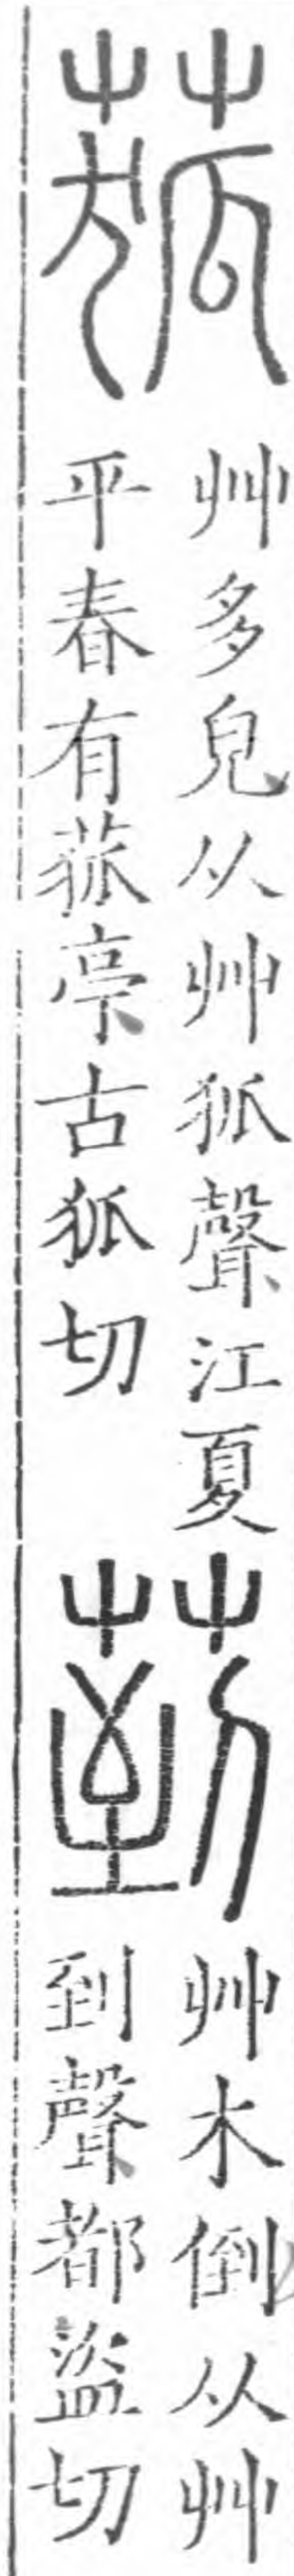 𦳊
艸多皃从艸狐聲江夏
平春有𦳊亭古狐切
菿
艸木倒从艸
到聲都盜切